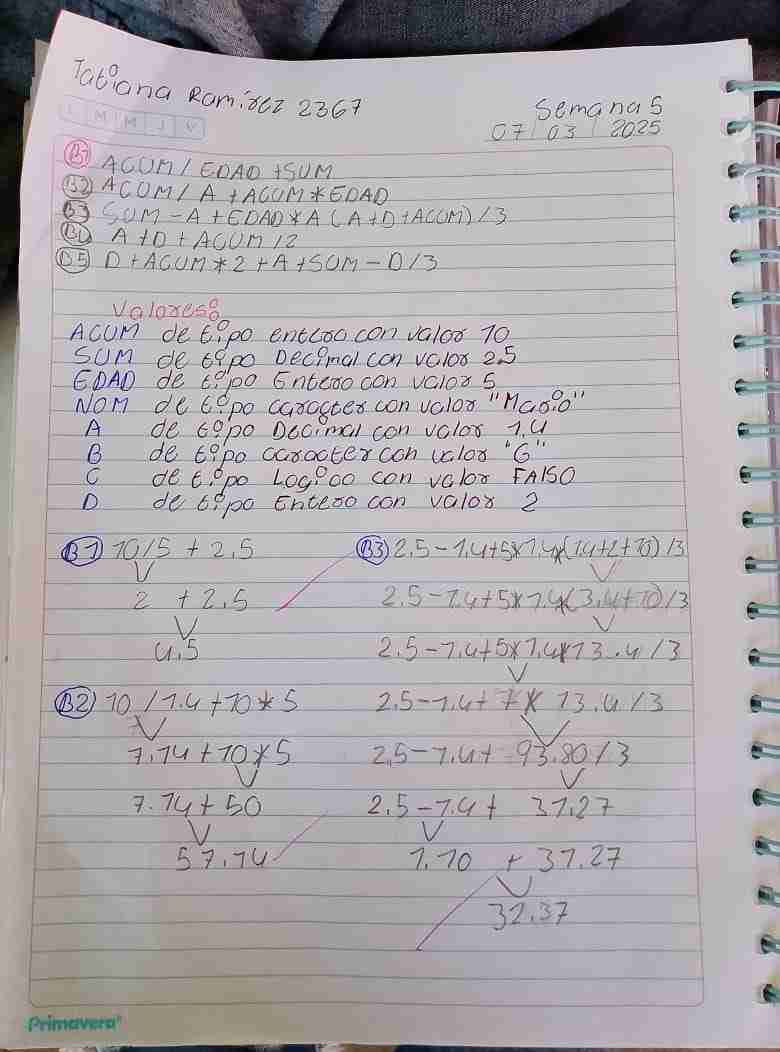 Tatiana Ramírez 2367
Semana 5
L M M J V
07 03 2025
B1 ACUM / EDAD + SUM
B2 ACUM / A + ACUM * EDAD
B3 SUM - A + EDAD * A (A + D + ACUM) / 3
B4 A + D + ACUM / 2
B5 D + ACUM * 2 + A + SUM - D / 3
Valores:
ACUM de tipo entero con valor 10
SUM de tipo Decimal con valor 2.5
EDAD de tipo Entero con valor 5
NOM de tipo caracter con valor "Mario"
A de tipo Decimal con valor 1.4
B de tipo caracter con valor "G"
C de tipo Logico con valor FALSO
D de tipo Entero con valor 2
B1 10/5 + 2.5
2 + 2.5
4.5
B2 10 / 1.4 + 10 * 5
7.14 + 10 * 5
7.14 + 50
57.14
B3 2.5 - 1.4 + 5 * 1.4 * (1.4 + 2 + 10) / 3
2.5 - 1.4 + 5 * 1.4 * (3.4 + 10) / 3
2.5 - 1.4 + 5 * 1.4 * 13.4 / 3
2.5 - 1.4 + 7 * 13.4 / 3
2.5 - 1.4 + 93.80 / 3
2.5 - 1.4 + 31.27
1.10 + 31.27
32.37
Primavera